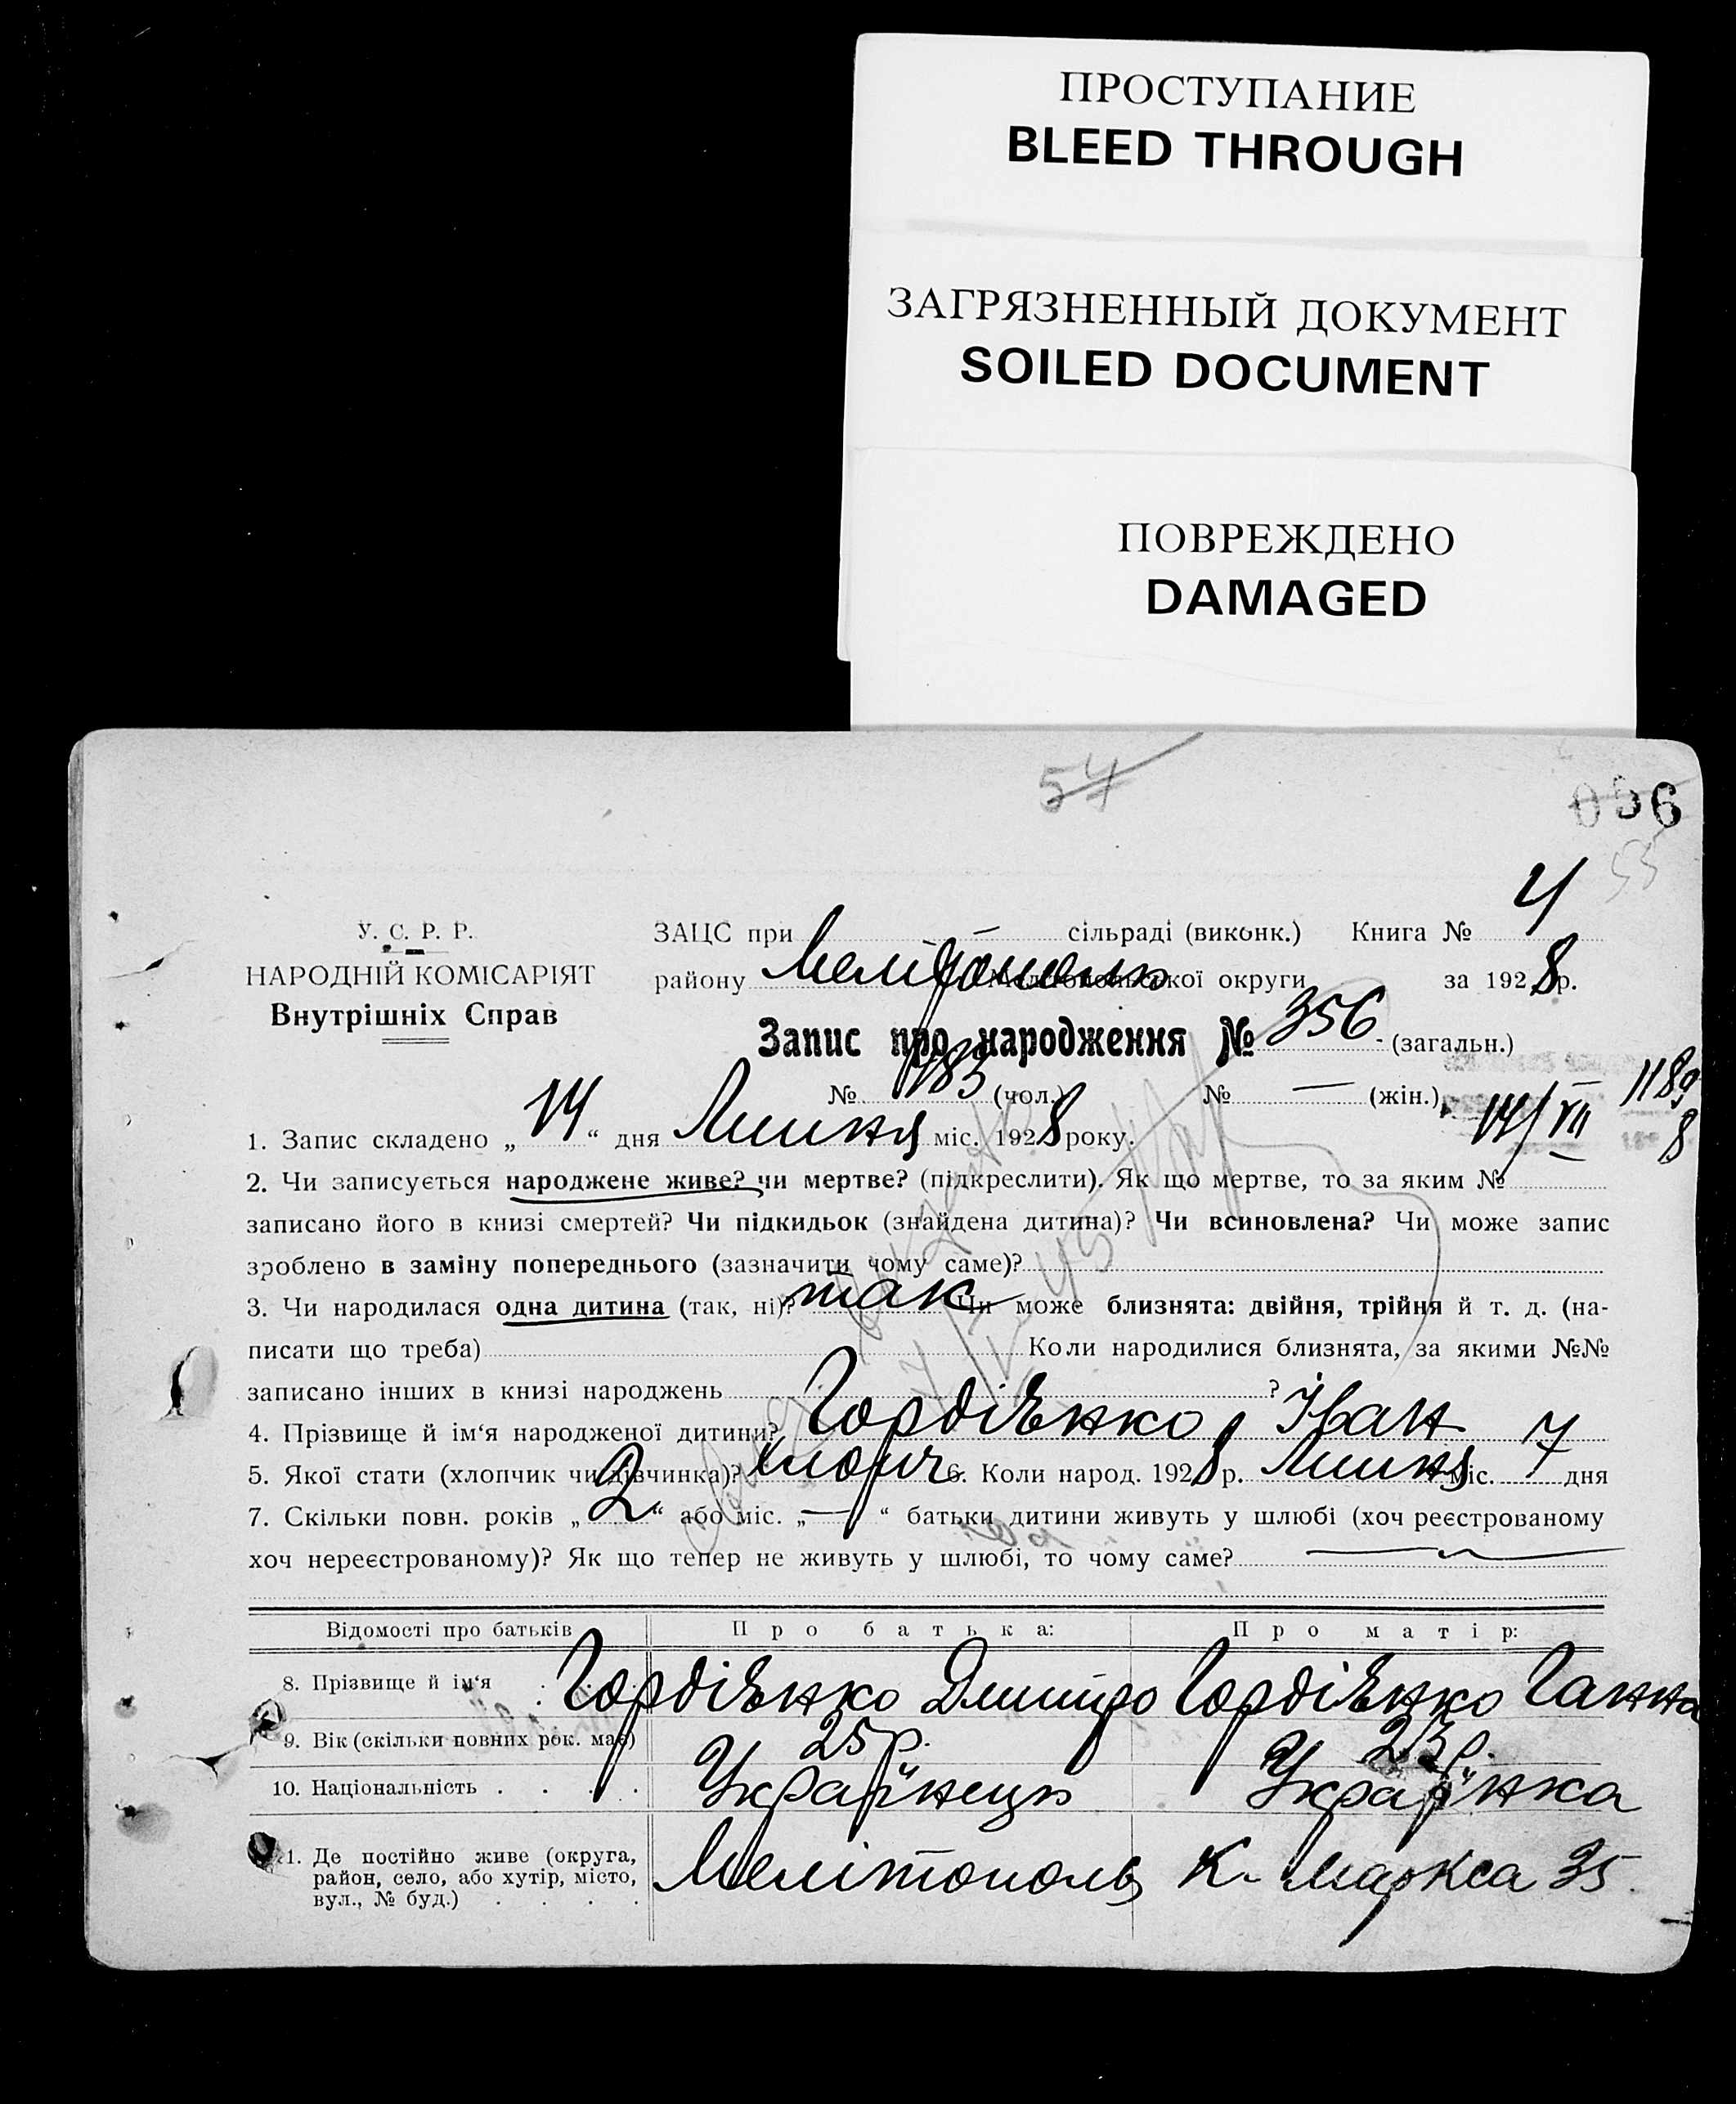 ПРОСТУПАНИЕ
BLEED THROUGH
ЗАГРЯЗНЕННЫЙ ДОКУМЕНТ
SOILED DOCUMENT
ПОВРЕЖДЕНО
DAMAGED
57
056
55
У. С. Р. Р.
НАРОДНІЙ КОМІСАРІЯТ
Внутрішніх Справ
ЗАЦС при — сільраді (виконк.) Книга № 4
району Мелітополь Мелітопольської округи за 1928 р.
Запис про народження № 356 (загальн.)
№ 183 (чол.) № — (жін.)
14/VII 1189
8
1. Запис складено „ 14 “ дня Липня міс. 1928 року.
2. Чи записується народжене живе? чи мертве? (підкреслити). Як що мертве, то за яким №
записано його в книзі смертей? Чи підкидьок (знайдена дитина)? Чи всиновлена? Чи може запис
зроблено в заміну попереднього (зазначити чому саме)?
3. Чи народилася одна дитина (так, ні)? так Чи може близнята: двійня, трійня й т. д. (на-
писати що треба) Коли народилися близнята, за якими №№
записано інших в книзі народжень ?
4. Прізвище й ім‘я народженої дитини? Гордієнко Іван
5. Якої стати (хлопчик чи дівчинка)? хлопч 6. Коли народ. 1928 р. Липня міс. 7 дня
7. Скільки повн. років „ 2 “ або міс. „ — “ батьки дитини живуть у шлюбі (хоч реєстрованому
хоч нереєстрованому)? Як що тепер не живуть у шлюбі, то чому саме? —
Відомості про батьків Про батька: Про матір:
8. Прізвище й ім‘я . . . Гордієнко Дмитро Гордієнко Ганна
9. Вік (скільки повних рок. має) 25 р. 23 р.
10. Національність . . . . Українець Українка
11. Де постійно живе (округа,
район, село, або хутір, місто,
вул., № буд.) . . . . Мелітополь К. Маркса 35